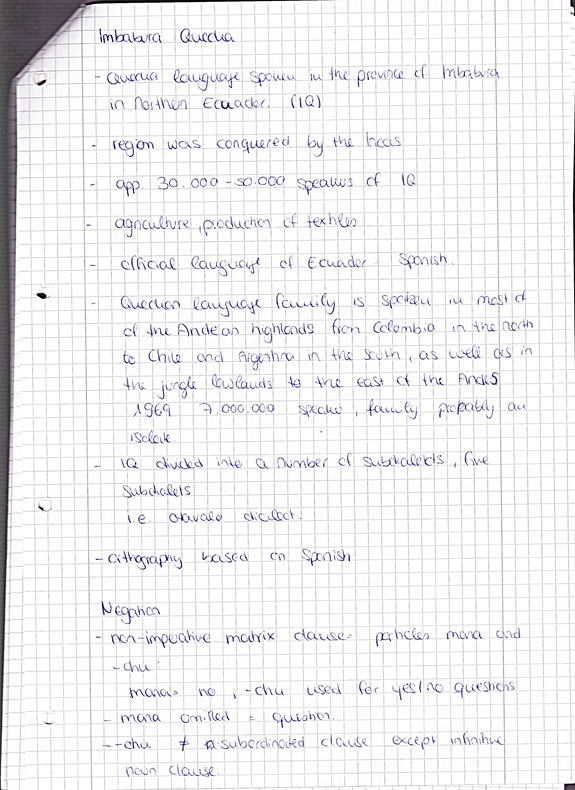 Imbabura Quechua
- Quechua language spoken in the province of Imbabura
in Northern Ecuador. (IQ)
- region was conquered by the Incas
- app. 30.000 - 50.000 speakers of IQ
- agriculture, production of textiles
- official language of Ecuador Spanish.
- Quechuan language family is spoken in most of
of the Andean highlands from Colombia in the north
to Chile and Argentina in the south, as well as in
the jungle lowlands to the east of the Andes
1969 7.000.000 speaker, family probably an
isolate
- IQ divided into a number of subdialects, five
subdialets
i.e. otavalo dialect.
- orthography based on Spanish
Negation
- non-imperative matrix clause: particles mana and
-chu
mana= no ; -chu used for yes/no questions
- mana omitted = question.
- -chu ≠ subordinated clause except infinitive
noun clause.